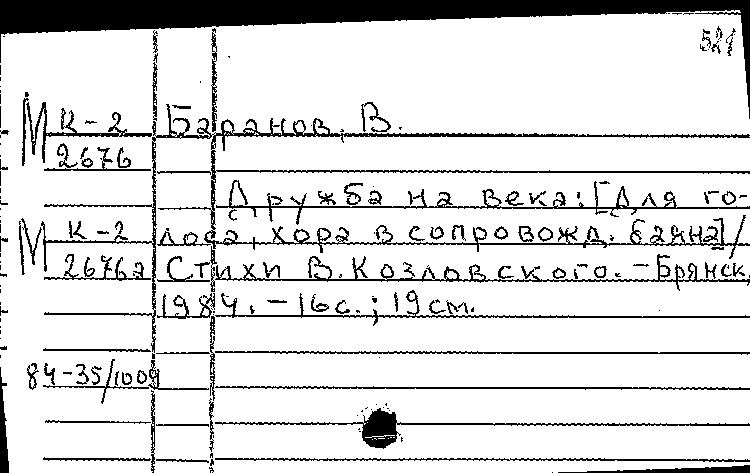 521
М К-2 Баранов, В.
2676
Дружба на века: [Для го-
М К-2 лоса, хора в сопровожд. баяна] /
2676а Стихи В. Козловского. – Брянск,
1984. – 16 с.; 19 см.
84-35/1009